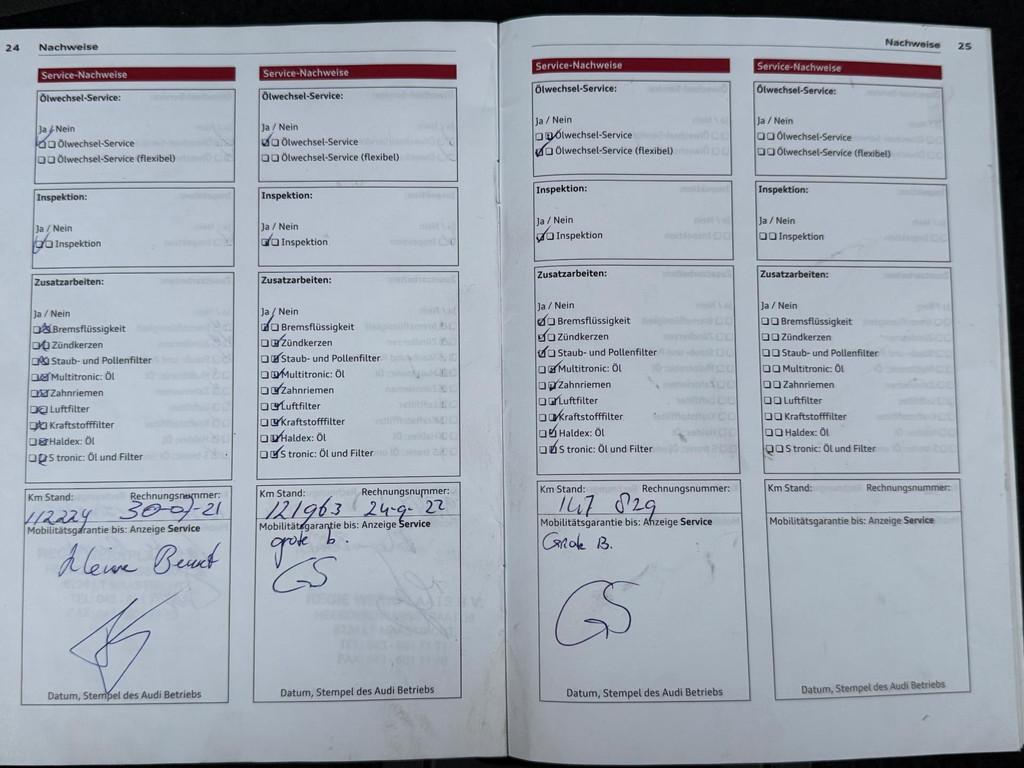 24 Nachweise
Service-Nachweise
Ölwechsel-Service:
Ja / Nein
Ölwechsel-Service
Ölwechsel-Service (flexibel)
Inspektion:
Ja / Nein
Inspektion
Zusatzarbeiten:
Ja / Nein
Bremsflüssigkeit
Zündkerzen
Staub- und Pollenfilter
Multitronic: Öl
Zahnriemen
Luftfilter
Kraftstofffilter
Haldex: Öl
S tronic: Öl und Filter
Km Stand: Rechnungsnummer:
112224 30-07-21
Mobilitätsgarantie bis: Anzeige Service
Kleine Beurt
Datum, Stempel des Audi Betriebs
Service-Nachweise
Ölwechsel-Service:
Ja / Nein
Ölwechsel-Service
Ölwechsel-Service (flexibel)
Inspektion:
Ja / Nein
Inspektion
Zusatzarbeiten:
Ja / Nein
Bremsflüssigkeit
Zündkerzen
Staub- und Pollenfilter
Multitronic: Öl
Zahnriemen
Luftfilter
Kraftstofffilter
Haldex: Öl
S tronic: Öl und Filter
Km Stand: Rechnungsnummer:
121963 24-9-22
Mobilitätsgarantie bis: Anzeige Service
grote b.
GS
Datum, Stempel des Audi Betriebs
Nachweise 25
Service-Nachweise
Ölwechsel-Service:
Ja / Nein
Ölwechsel-Service
Ölwechsel-Service (flexibel)
Inspektion:
Ja / Nein
Inspektion
Zusatzarbeiten:
Ja / Nein
Bremsflüssigkeit
Zündkerzen
Staub- und Pollenfilter
Multitronic: Öl
Zahnriemen
Luftfilter
Kraftstofffilter
Haldex: Öl
S tronic: Öl und Filter
Km Stand: Rechnungsnummer:
147 829
Mobilitätsgarantie bis: Anzeige Service
Grote B.
GS
Datum, Stempel des Audi Betriebs
Service-Nachweise
Ölwechsel-Service:
Ja / Nein
Ölwechsel-Service
Ölwechsel-Service (flexibel)
Inspektion:
Ja / Nein
Inspektion
Zusatzarbeiten:
Ja / Nein
Bremsflüssigkeit
Zündkerzen
Staub- und Pollenfilter
Multitronic: Öl
Zahnriemen
Luftfilter
Kraftstofffilter
Haldex: Öl
S tronic: Öl und Filter
Km Stand: Rechnungsnummer:
Mobilitätsgarantie bis: Anzeige Service
Datum, Stempel des Audi Betriebs